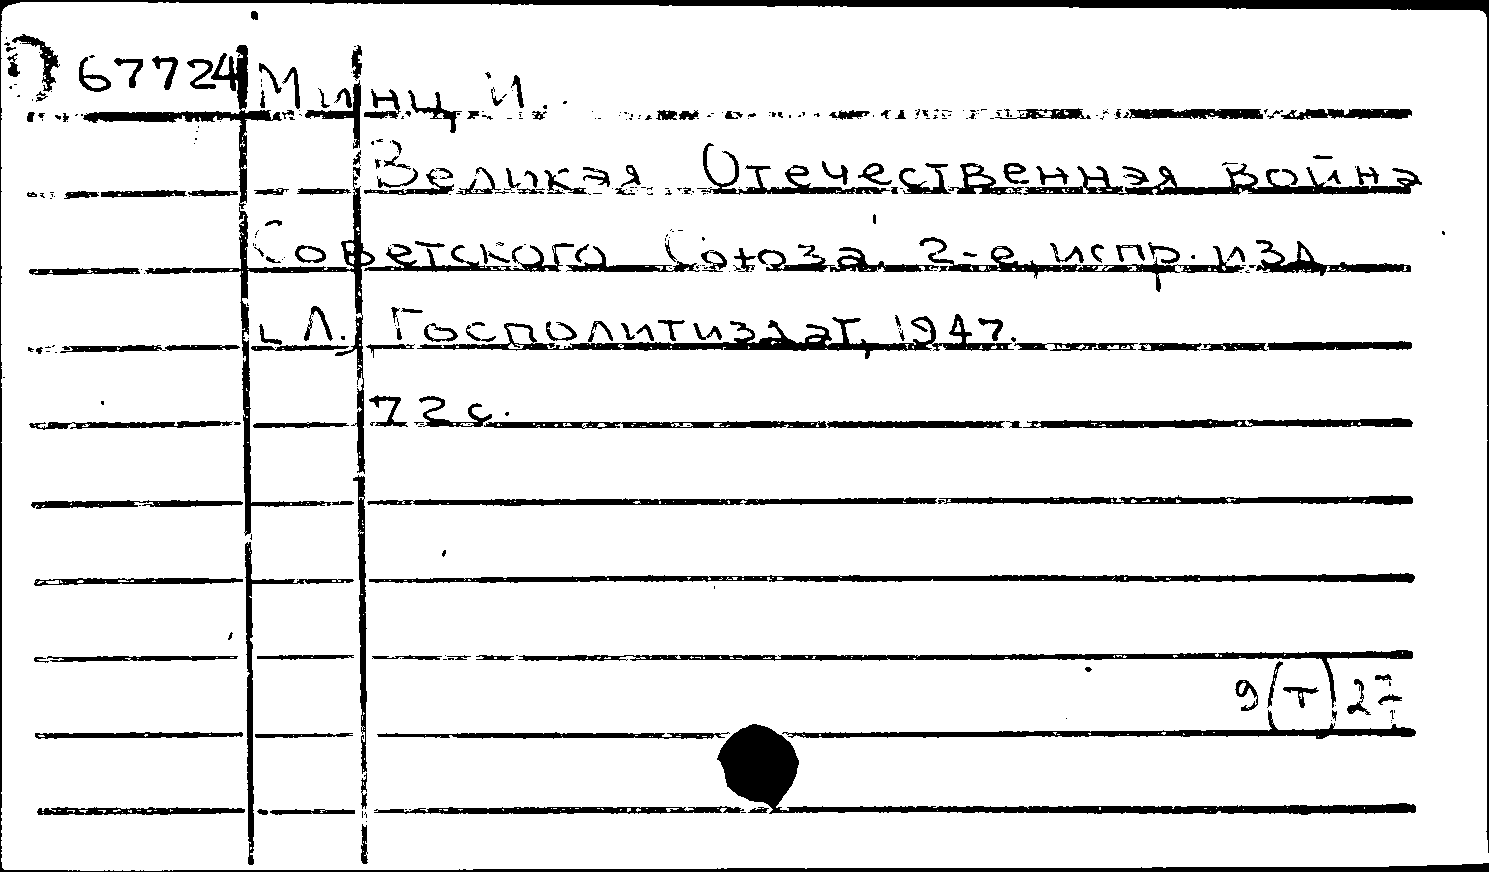 67724 Минц, И.
Великая Отечественная война
Советского Союза. 2-е, испр. изд.
Л., Госполитиздат, 1947.
72 с.
9(т)27